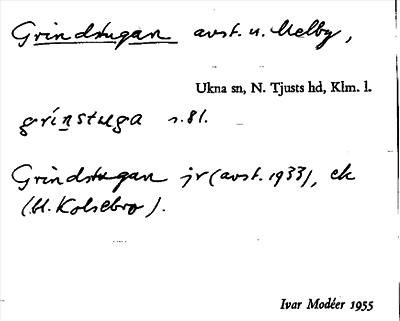 Grindstugan avst. u. Melby,
Ukna sn, N. Tjusts hd, Klm. l.
grinstuga s. 81.
Grindstugan jr (avst. 1933), ek
(H. Kolsebro).
Ivar Modéer 1955